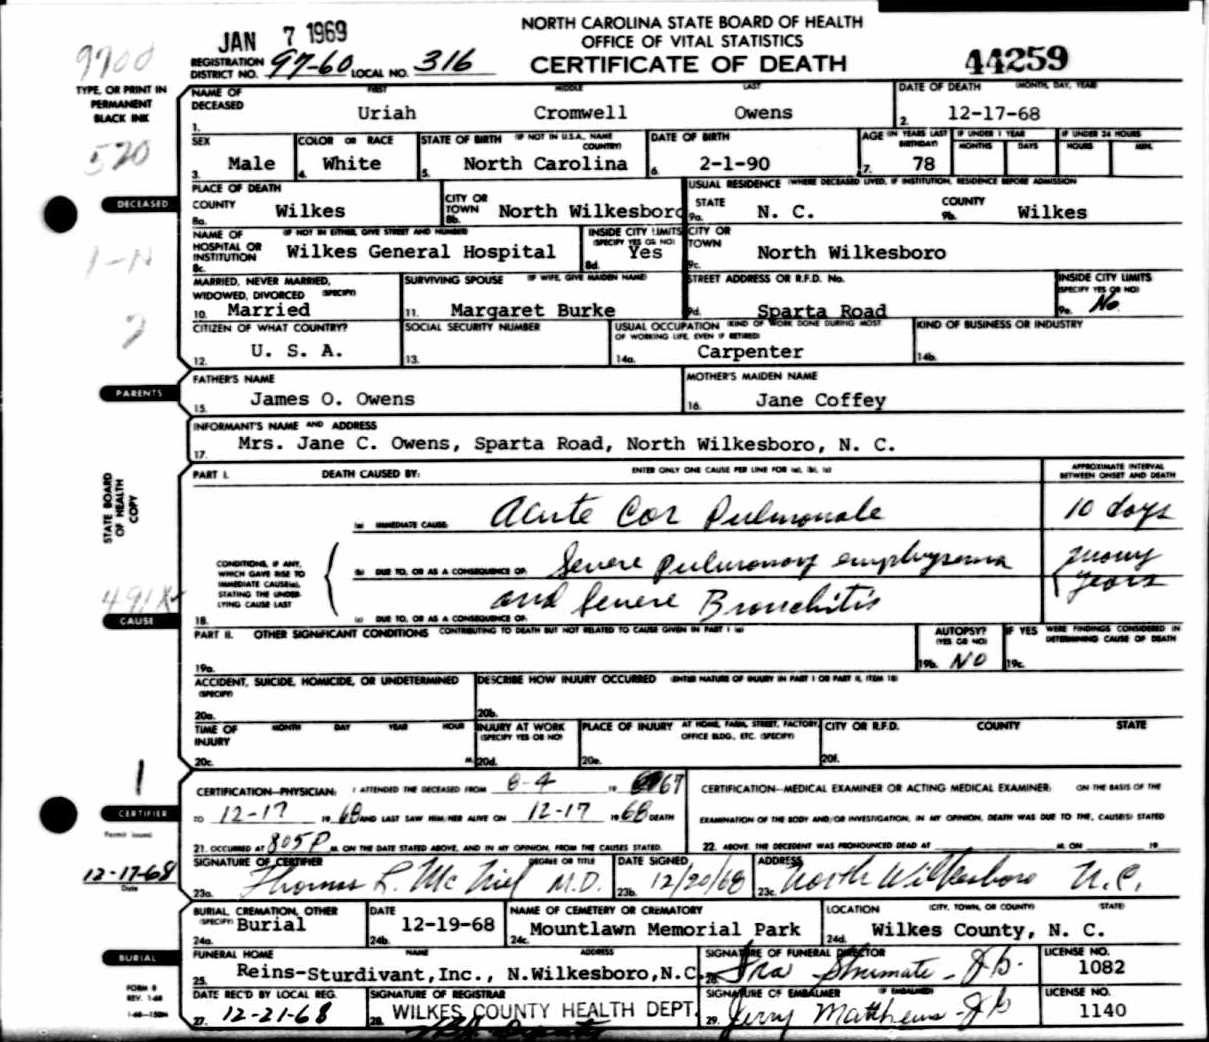 NORTH CAROLINA STATE BOARD OF HEALTH
OFFICE OF VITAL STATISTICS
CERTIFICATE OF DEATH
44259
JAN 7 1969
9700
REGISTRATION DISTRICT NO. 97-60 LOCAL NO. 316
TYPE, OR PRINT IN PERMANENT BLACK INK
520
DECEASED
1-N
2
NAME OF DECEASED FIRST MIDDLE LAST DATE OF DEATH (MONTH, DAY, YEAR)
1. Uriah Cromwell Owens 2. 12-17-68
SEX COLOR OR RACE STATE OF BIRTH (IF NOT IN U.S.A., NAME COUNTRY) DATE OF BIRTH AGE (IN YEARS LAST BIRTHDAY) IF UNDER 1 YEAR MONTHS DAYS IF UNDER 24 HOURS HOURS MIN.
3. Male 4. White 5. North Carolina 6. 2-1-90 7. 78
PLACE OF DEATH USUAL RESIDENCE (WHERE DECEASED LIVED, IF INSTITUTION, RESIDENCE BEFORE ADMISSION
COUNTY CITY OR TOWN STATE COUNTY
8a. Wilkes 8b. North Wilkesboro 9a. N. C. 9b. Wilkes
NAME OF HOSPITAL OR INSTITUTION (IF NOT IN EITHER, GIVE STREET AND NUMBER) INSIDE CITY LIMITS (SPECIFY YES OR NO) CITY OR TOWN
8c. Wilkes General Hospital 8d. Yes 9c. North Wilkesboro
MARRIED, NEVER MARRIED, WIDOWED, DIVORCED (SPECIFY) SURVIVING SPOUSE (IF WIFE, GIVE MAIDEN NAME) STREET ADDRESS OR R.F.D. No. INSIDE CITY LIMITS (SPECIFY YES OR NO)
10. Married 11. Margaret Burke 9d. Sparta Road 9e. No
CITIZEN OF WHAT COUNTRY? SOCIAL SECURITY NUMBER USUAL OCCUPATION (KIND OF WORK DONE DURING MOST OF WORKING LIFE, EVEN IF RETIRED) KIND OF BUSINESS OR INDUSTRY
12. U. S. A. 13. 14a. Carpenter 14b.
PARENTS
FATHER'S NAME MOTHER'S MAIDEN NAME
15. James O. Owens 16. Jane Coffey
INFORMANT'S NAME AND ADDRESS
17. Mrs. Jane C. Owens, Sparta Road, North Wilkesboro, N. C.
STATE BOARD OF HEALTH COPY
CAUSE
PART I. DEATH CAUSED BY: ENTER ONLY ONE CAUSE PER LINE FOR (a), (b), (c) APPROXIMATE INTERVAL BETWEEN ONSET AND DEATH
(a) IMMEDIATE CAUSE: Acute Cor Pulmonale 10 days
CONDITIONS, IF ANY, WHICH GAVE RISE TO IMMEDIATE CAUSE(a), STATING THE UNDERLYING CAUSE LAST
(b) DUE TO, OR AS A CONSEQUENCE OF: Severe pulmonary emphysema many years
and Severe Bronchitis
18. (c) DUE TO, OR AS A CONSEQUENCE OF:
PART II. OTHER SIGNIFICANT CONDITIONS CONTRIBUTING TO DEATH BUT NOT RELATED TO CAUSE GIVEN IN PART I (a) AUTOPSY? (YES OR NO) IF YES WERE FINDINGS CONSIDERED IN DETERMINING CAUSE OF DEATH
19a. 19b. NO 19c.
ACCIDENT, SUICIDE, HOMICIDE, OR UNDETERMINED (SPECIFY) DESCRIBE HOW INJURY OCCURRED (ENTER NATURE OF INJURY IN PART I OR PART II, ITEM 18)
20a. 20b.
TIME OF INJURY MONTH DAY YEAR HOUR INJURY AT WORK (SPECIFY YES OR NO) PLACE OF INJURY AT HOME, FARM, STREET, FACTORY, OFFICE BLDG., ETC. (SPECIFY) CITY OR R.F.D. COUNTY STATE
20c. M. 20d. 20e. 20f.
1
CERTIFIER
Permit issued
12-17-68
Date
CERTIFICATION—PHYSICIAN: I ATTENDED THE DECEASED FROM 8-4 19 67
TO 12-17 19 68 AND LAST SAW HIM/HER ALIVE ON 12-17 19 68 DEATH
21. OCCURRED AT 805 P M. ON THE DATE STATED ABOVE, AND IN MY OPINION, FROM THE CAUSES STATED.
CERTIFICATION—MEDICAL EXAMINER OR ACTING MEDICAL EXAMINER: ON THE BASIS OF THE
EXAMINATION OF THE BODY AND/OR INVESTIGATION, IN MY OPINION, DEATH WAS DUE TO THE CAUSE(S) STATED
22. ABOVE. THE DECEDENT WAS PRONOUNCED DEAD AT M. ON 19
SIGNATURE OF CERTIFIER DEGREE OR TITLE DATE SIGNED ADDRESS
23a. Thomas L. McNiel M.D. 23b. 12/20/68 23c. North Wilkesboro N.C.
BURIAL
BURIAL, CREMATION, OTHER (SPECIFY) DATE NAME OF CEMETERY OR CREMATORY LOCATION (CITY, TOWN, OR COUNTY) (STATE)
24a. Burial 24b. 12-19-68 24c. Mountlawn Memorial Park 24d. Wilkes County, N. C.
FUNERAL HOME NAME ADDRESS SIGNATURE OF FUNERAL DIRECTOR LICENSE NO.
25. Reins-Sturdivant,Inc., N.Wilkesboro,N.C. 26. Ira Shumate - JB. 1082
FORM 8
REV. 1-68
DATE REC'D BY LOCAL REG. SIGNATURE OF REGISTRAR SIGNATURE OF EMBALMER (IF EMBALMED) LICENSE NO.
27. 12-21-68 28. WILKES COUNTY HEALTH DEPT. 29. Jerry Matthews - JB 1140